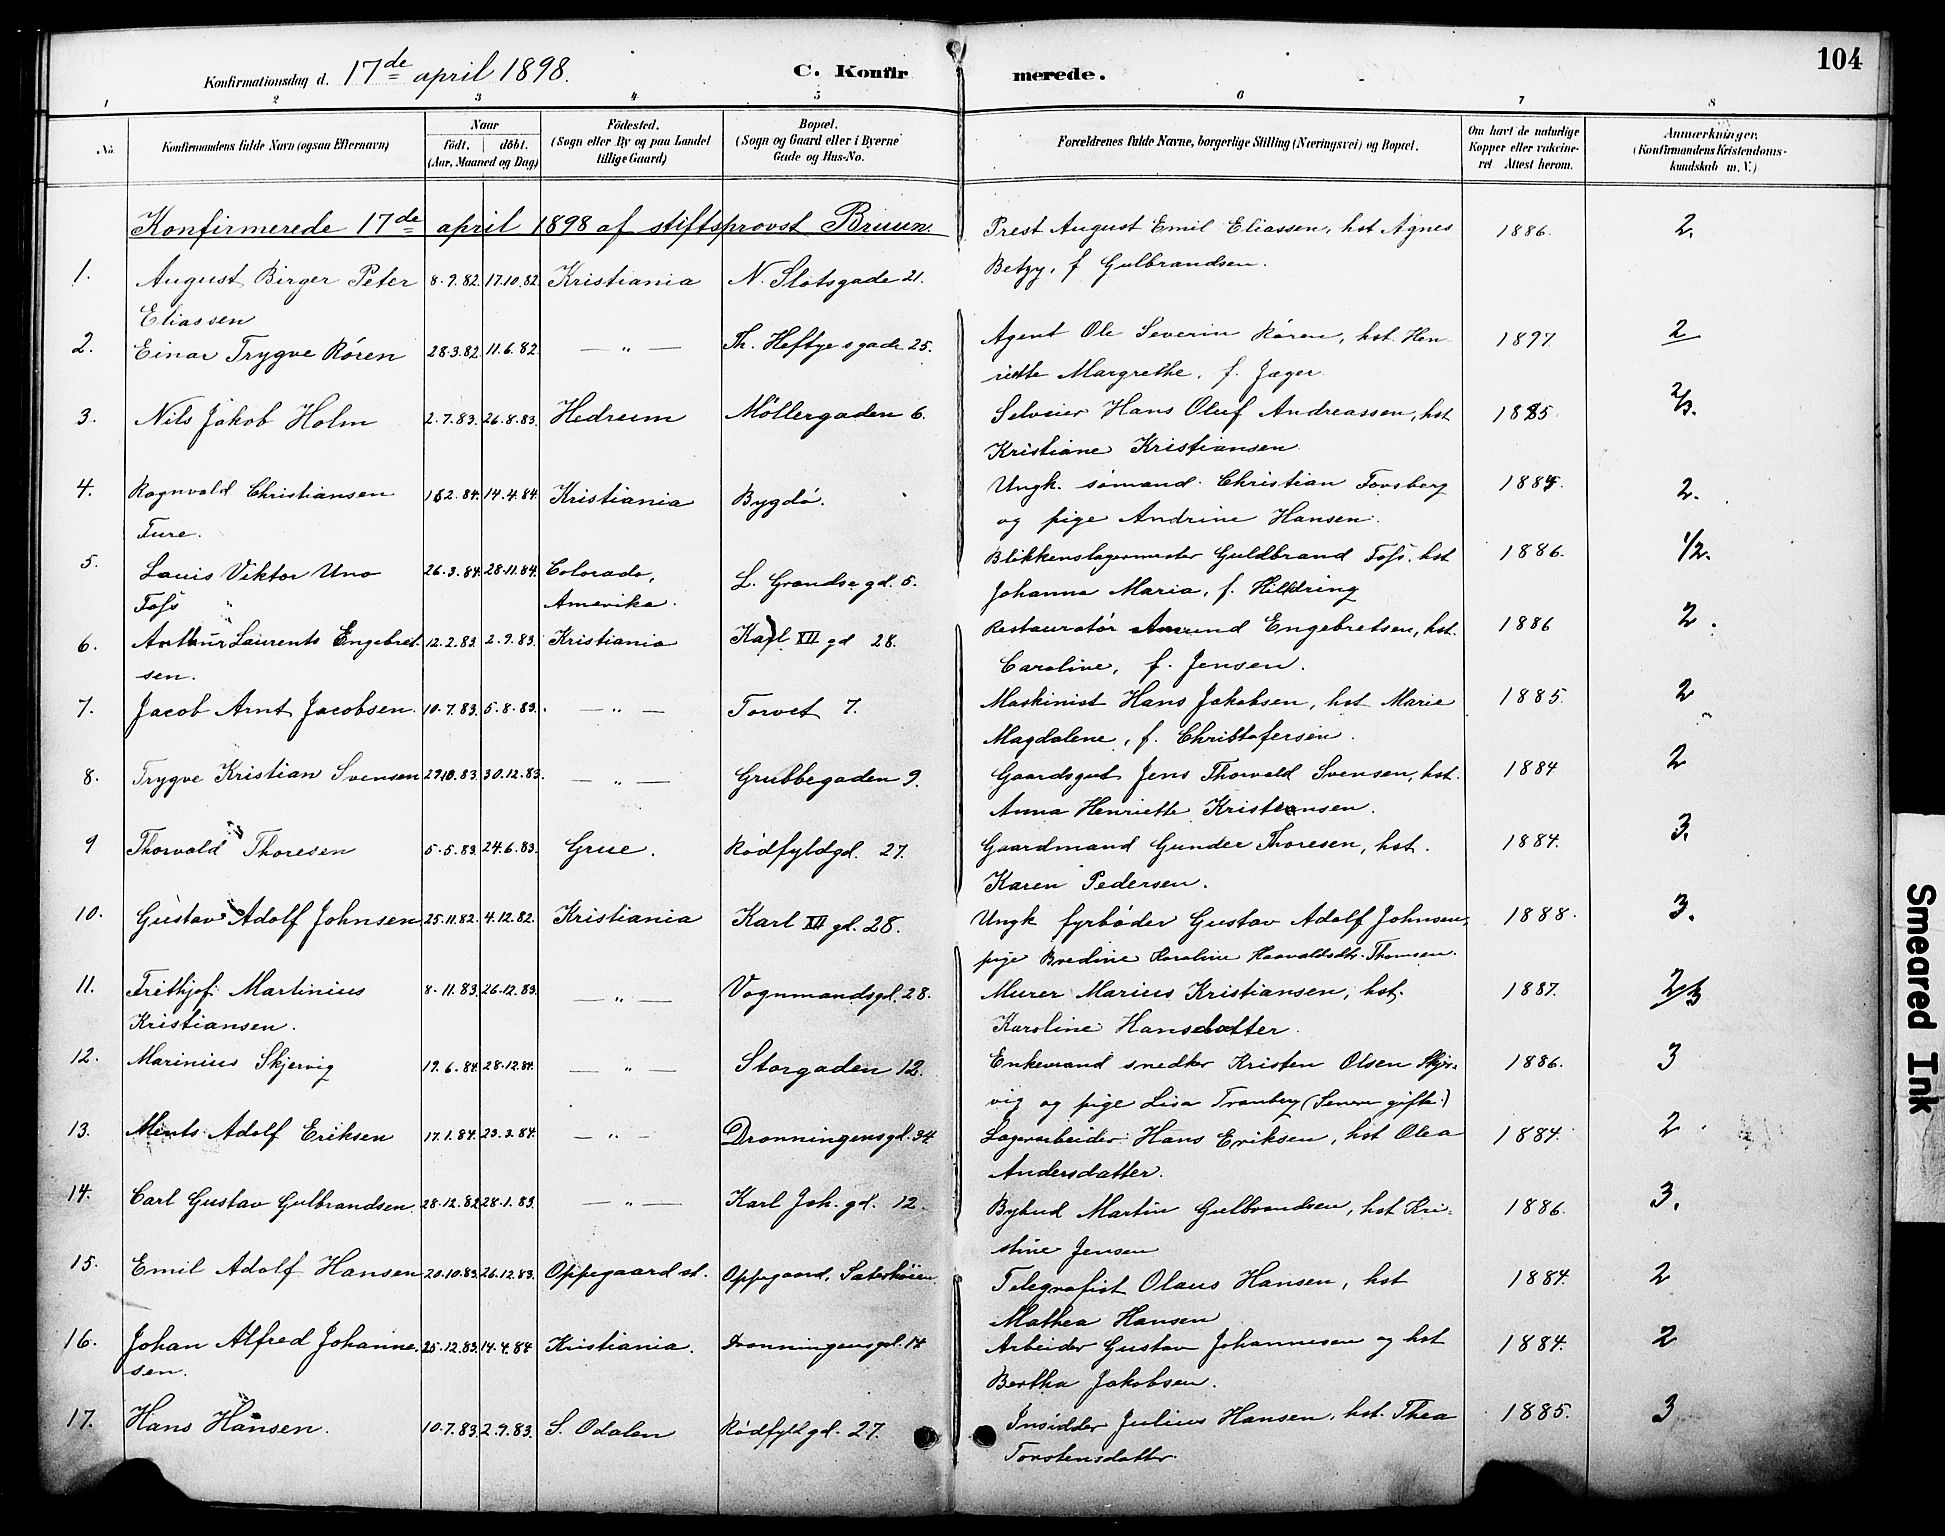 104
Konfirmationsdag d. 17de april 1898.
C. Konfirmerede.
1 2 3 4 5 6 7 8
No.
Konfirmandens fulde Navn (ogsaa Efternavn)
Naar
födt. döbt.
(Aar, Maaned og Dag)
Födested.
(Sogn eller By og paa Landet
tillige Gaard)
Bopæl.
(Sogn og Gaard eller i Byerne
Gade og Hus-No.
Forældrenes fulde Navne, borgerlige Stilling (Næringsvei) og Bopæl.
Om havt de naturlige
Kopper eller vakcine-
ret Attest herom.
Anmærkninger.
(Konfirmandens Kristendoms-
kundskab m. V.)
Konfirmerede 17de april 1898 af stiftsprovst Bruun.
1. August Birger Peter 8.9.82. 17.10.82 Kristiania N. Slotsgade 21. Prest August Emil Eliassen, hst Agnes 1886. 2.
Eliassen Betzy, f Gulbrandsen.
2. Einar Trygve Røren 28.3.82 11.6.82 — „ — Th. Heftyesgade 25. Agent Ole Severin Røren, hst. Hen- 1897 2
riette Margrethe, f. Jæger
3. Nils Jakob Holm 2.7.83. 26.8.83. Hedrum Møllergaden 6. Selveier Hans Oluf Andreassen, hst 1885 2/3.
Kristiane Kristiansen
4. Ragnvald Christiansen 14.4.84. Kristiania Bygdø. Ungk. sømand Christian Forsberg 2.
Ture. og pige Andrine Hansen.
5. Louis Viktor Uno 26.3.84. 28.11.84. Colorado, L. Grændsegd. 5. Blikkenslagermester Guldbrand Foss, hst 1886. 1/2.
Foss Amerika. Johanna Maria, f. Hildring
6. Arthur Laurents Engebret- 12.2.83 2.9.83. Kristiania Karl XII gd 28. Restauratør Amund Engebretsen, hst. 1886 2.
sen. Caroline, f. Jensen.
7. Jacob Arnt Jacobsen. 10.7.83. 5.8.83. — „ — Torvet 7. Maskinist Hans Jakobsen, hst Marie 1885. 2
Magdalene, f. Christofersen.
8. Trygve Kristian Svensen 29.10.83. 30.12.83. — „ — Grubbegaden 9. Gaardsgut Jens Thorvald Svensen, hst. 1884 2
Anna Henriette Kristiansen.
9 Thorvald Thoresen 5.5.83. 24.6.83. Grue. Rødfyldgd. 27. Gaardmand Gunder Thoresen, hst. 1884. 3.
Karen Pedersen.
10. Gustav Adolf Johnsen 25.11.82. 4.12.82. Kristiania Karl XII gd. 28. Ungk fyrbøder Gustav Adolf Johnsen, 1888. 3.
pige Bredine Karoline Haavaldsdtr. Thomsen.
11. Frithjof Martinius 8.11.83. 26.12.83. — „ — Vognmandsgd. 28. Murer Marius Kristiansen, hst. 1887. 2/3
Kristiansen. Karoline Hansdatter.
12. Marinius Skjervig 19.6.84. 28.12.84. — „ — Storgaden 12. Enkemand snedker Kristen Olsen Skjer- 1886. 3
vig og pige Lisa Tranberg (Senere gifte.)
13. Adolf Eriksen 17.1.84. 23.3.84. — „ — Dronningensgd. 34. Lagerarbeider Hans Eriksen, hst Olea 1884. 2
Andersdatter.
14. Carl Gustav Gulbrandsen 28.12.82 28.1.83. — „ — Karl Joh. gd. 12. Bybud Martin Gulbrandsen, hst Kri- 1886. 3.
stine Jensen
15. Emil Adolf Hansen 20.10.83. 26.12.83. Oppegaard st. Oppegaard, Telegrafist Olaus Hansen, hst 1884. 2
Mathea Hansen
16. Johan Alfred Johanne- 25.12.83. 14.4.84 Kristiania. Dronningensgd. 14 Arbeider Gustav Johannesen og hst 1884. 2
sen. Bertha Jakobsen.
17. Hans Hansen. 10.7.83. 2.9.83. S. Odalen Rødfyldgd. 27. Insidder Julius Hansen, hst. Thea 1885. 3
Torstensdatter.
Smeared Ink